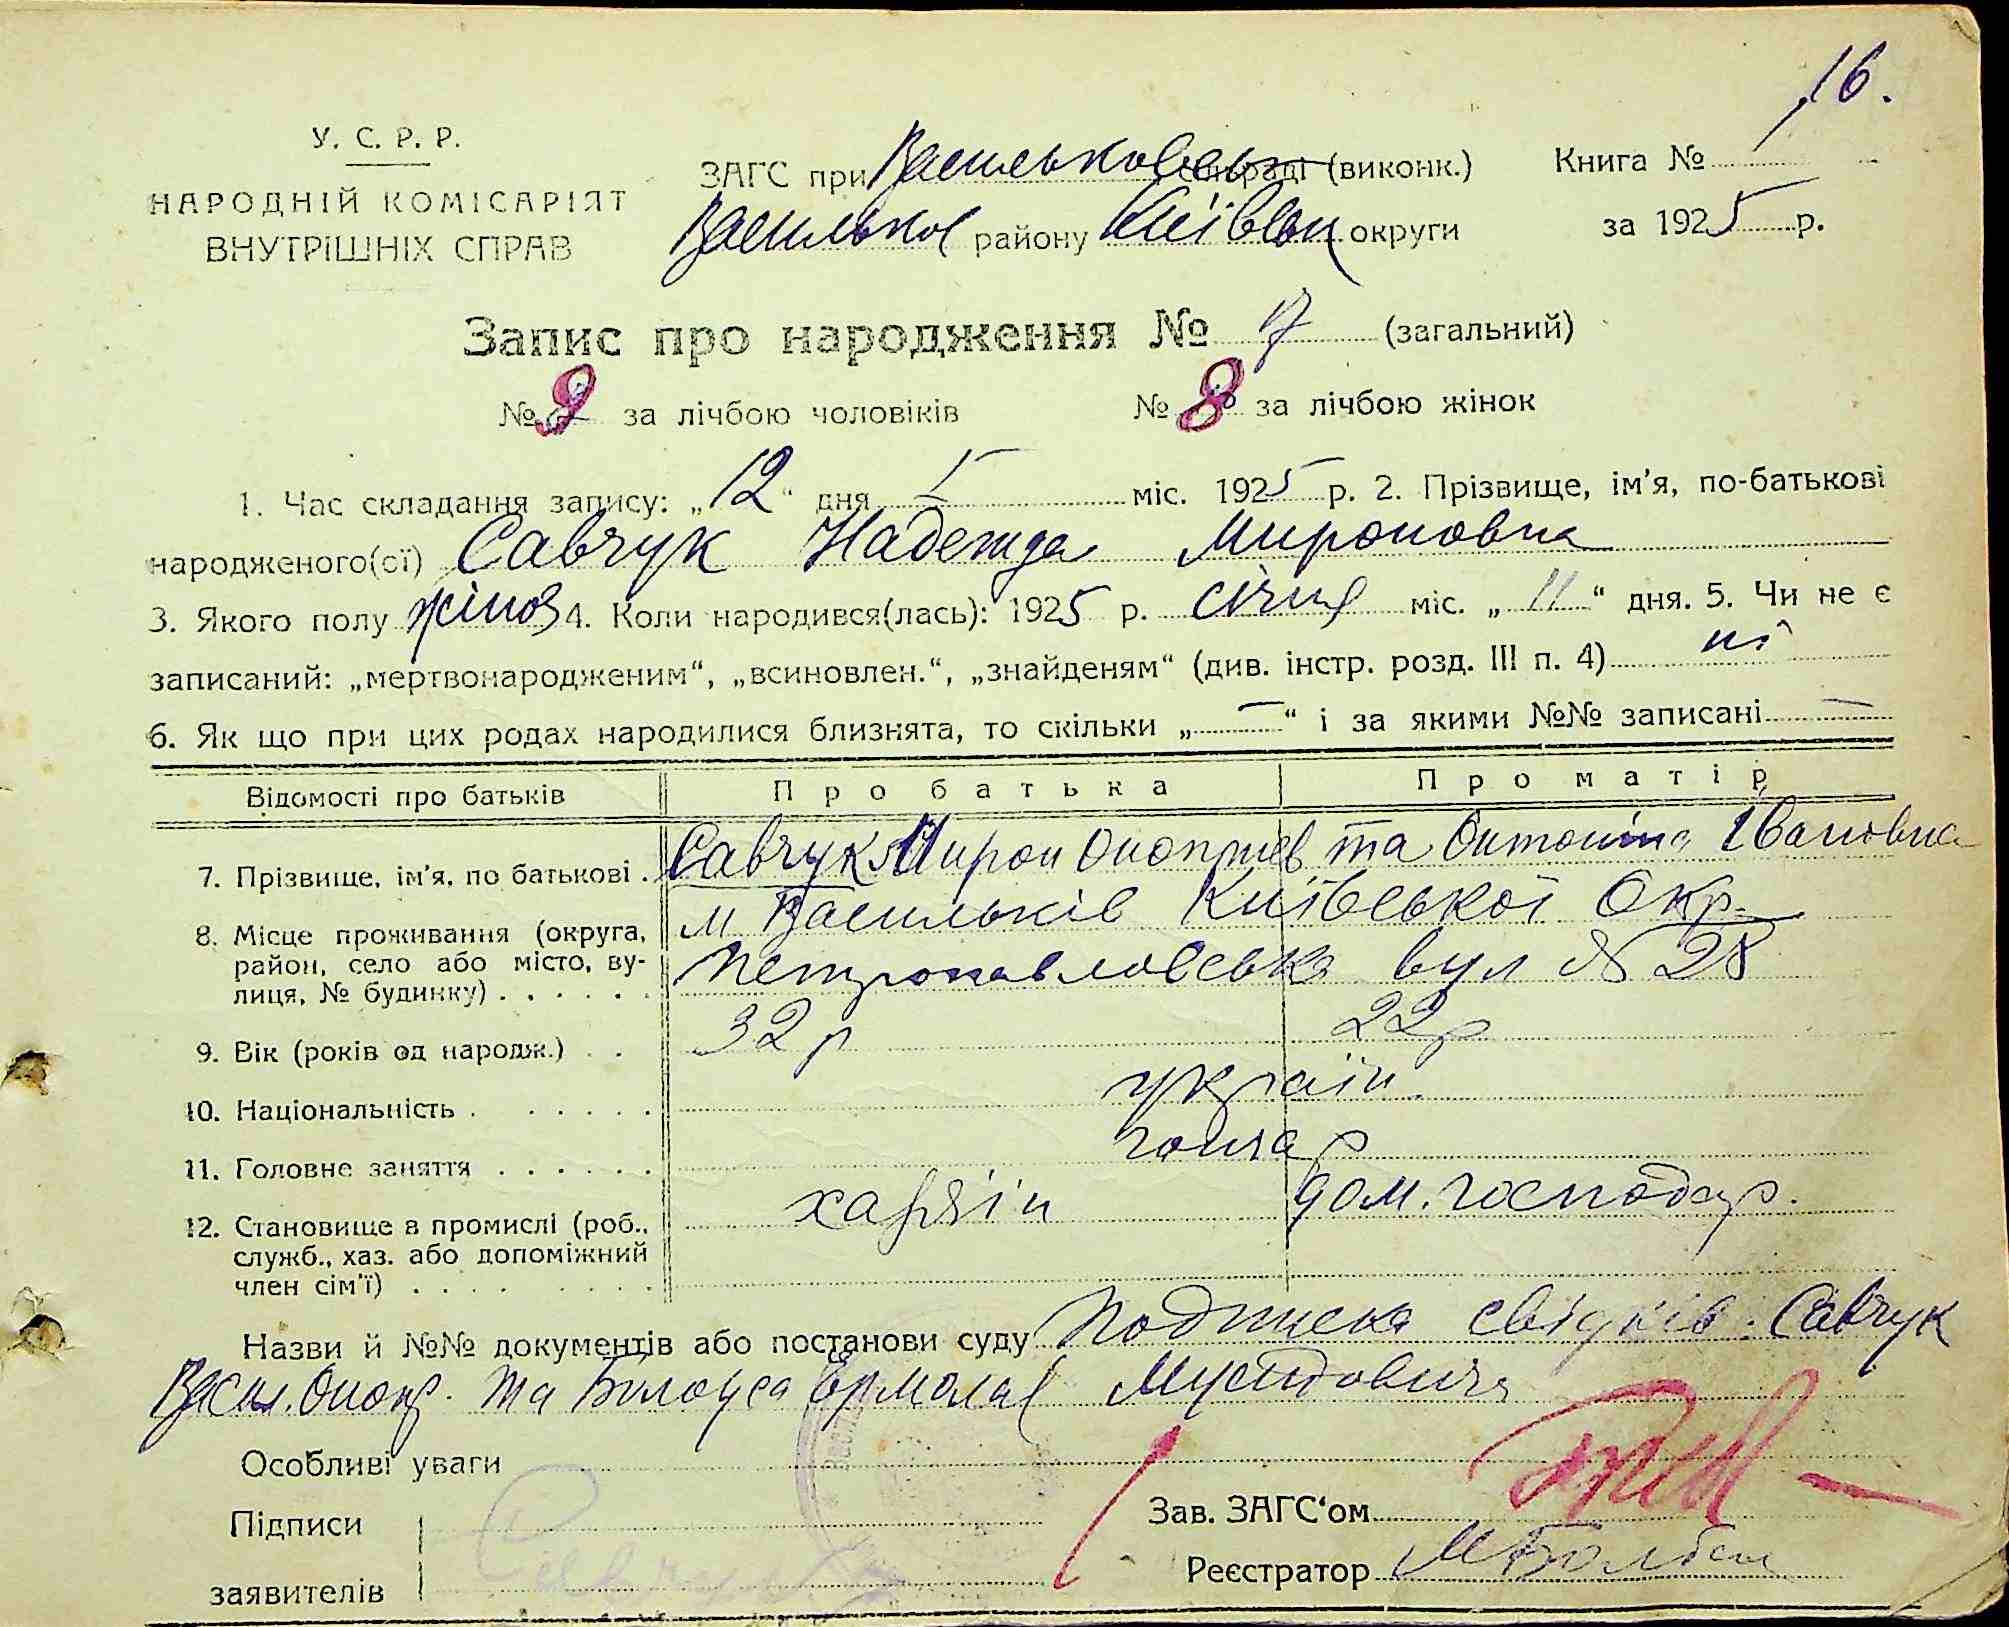 16.
У. С. Р. Р.
НАРОДНІЙ КОМІСАРІЯТ
ВНУТРІШНІХ СПРАВ
ЗАГС при Васильковськ сільраді (виконк.)
Васильков району Київськ округи
Книга №
за 1925 р.
Запис про народження № 17 (загальний)
№ 9 за лічбою чоловіків № 8 за лічбою жінок
1. Час складання запису: „12“ дня I міс. 1925 р. 2. Прізвище, ім'я, по-батькові
народженого(ої) Савчук Надежда Мироновна
3. Якого полу жіноч 4. Коли народився(лась): 1925 р. січня міс. „11“ дня. 5. Чи не є
записаний: „мертвонародженим“, „всиновлен.“, „знайденям“ (див. інстр. розд. III п. 4) ні
6. Як що при цих родах народилися близнята, то скільки „—“ і за якими №№ записані —
Відомості про батьків Про батька Про матір
7. Прізвище, ім'я, по батькові . Савчук Мирон Онопріев та Антонина Івановна
8. Місце проживання (округа, м Васильків Київської Окр.
район, село або місто, ву- Петропавловська вул № 28
лиця, № будинку) . . . . . .
9. Вік (років од народж.) . . 32 р 22 р
10. Національність . . . . . . україн.
11. Головне заняття . . . . . . гончар
12. Становище в промислі (роб., хазяїн дом. господар.
служб., хаз. або допоміжний
член сім'ї) . . . .
Назви й №№ документів або постанови суду Подписка свідків: Савчук
Васил. Оноп. та Білоуса Ермолая
Особливі уваги
Підписи
заявителів Савчук
Зав. ЗАГС'ом
Реєстратор